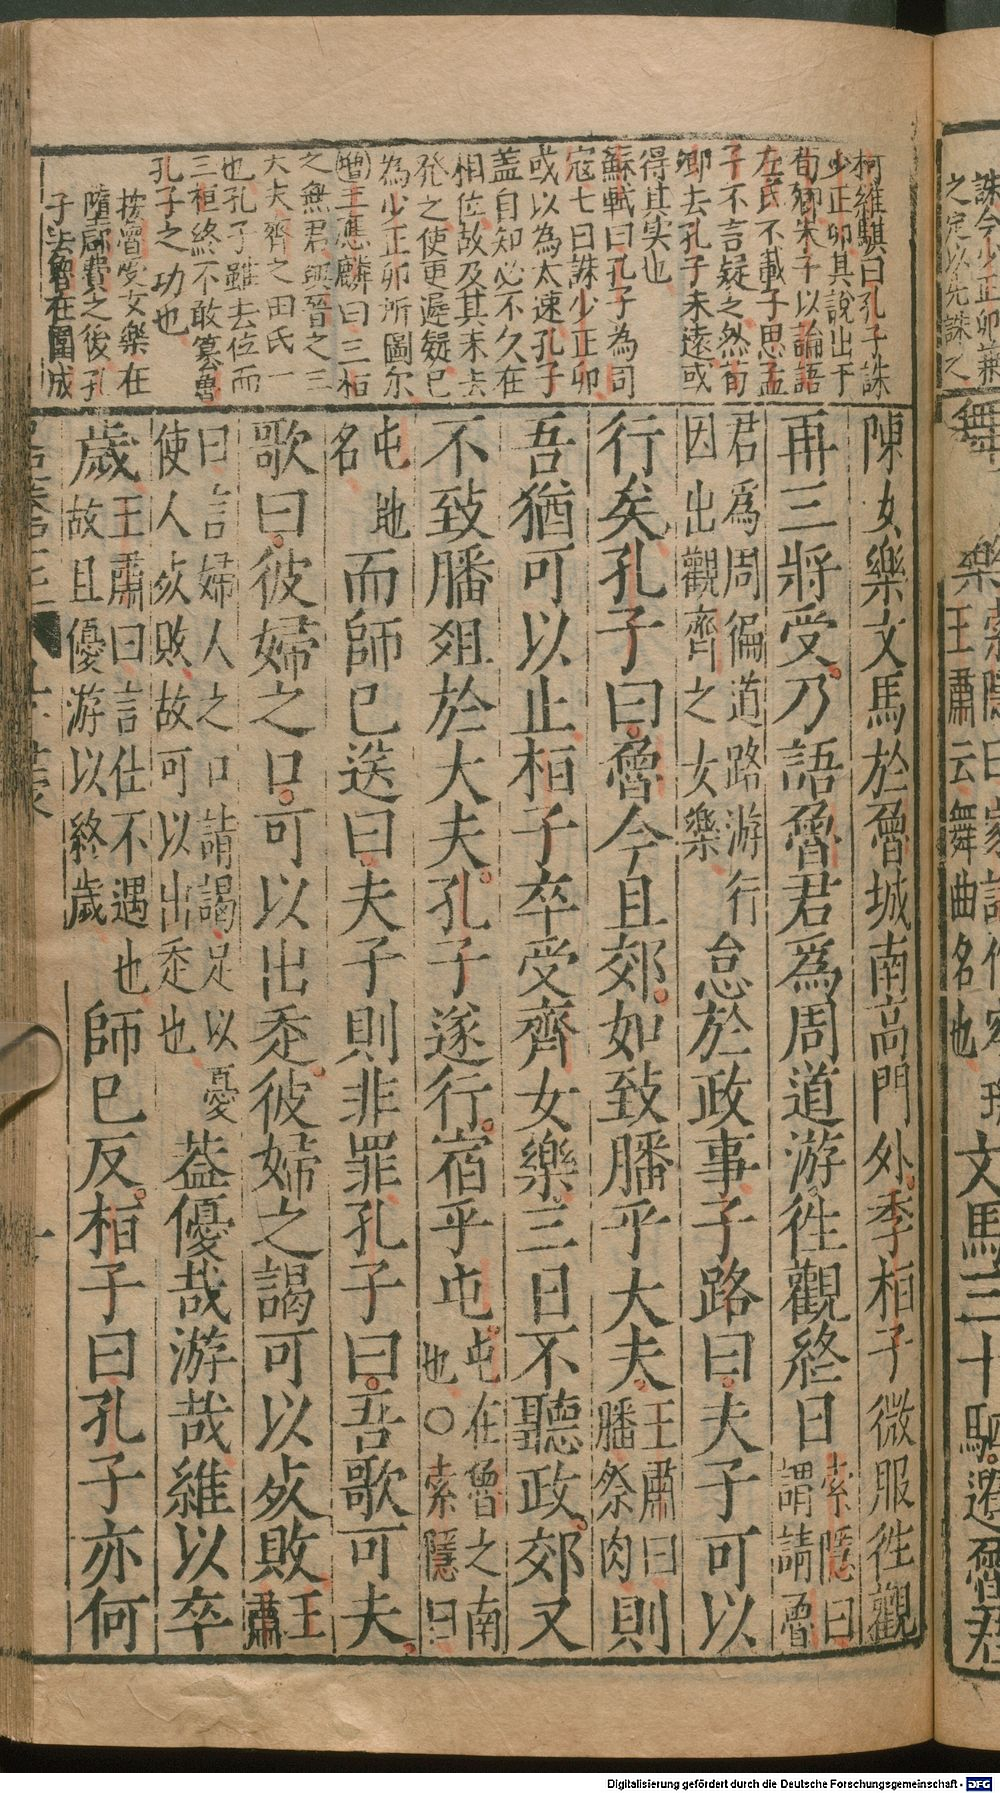 誅今少正卯兼
之定以先誅之
舞
樂索隱曰家語作容璣
王肅云舞曲名也
文馬三十駟遺魯君
柯維騏曰孔子誅
少正卯其說出于
荀卿朱子以論語
左氏不載子思孟
子不言疑之然荀
卿去孔子未遠或
得其实也
蘇軾曰孔子為司
寇七日誅少正卯
或以為太速孔子
盖自知必不久在
相位故及其未去
発之使更遲疑已
為少正卯所圖尔
增王應麟曰三桓
之無君與晉之三
大夫齊之田氏一
也孔子雖去位而
三桓終不敢簒魯
孔子之功也
按魯受女樂在
隳郈費之後孔
子去魯在圍成
陳女樂文馬於魯城南高門外季桓子微服徃觀
再三將受乃語魯君爲周道游徃觀終日索隱曰謂請魯
君爲周徧道路游行因出觀齊之女樂怠於政事子路曰夫子可以
行矣孔子曰魯今且郊如致膰乎大夫王肅曰膰祭肉則
吾猶可以止桓子卒受齊女樂三日不聽政郊又
不致膰俎於大夫孔子遂行宿乎屯屯在魯之南也○索隱曰
屯地名而師已送曰夫子則非罪孔子曰吾歌可夫
歌曰彼婦之口可以出走彼婦之謁可以死敗王肅
曰言婦人之口請謁足以憂使人死敗故可以出走也葢優哉游哉維以卒
歲王肅曰言仕不遇也故且優游以終歲師已反桓子曰孔子亦何
Digitalisierung gefördert durch die Deutsche Forschungsgemeinschaft - DFG